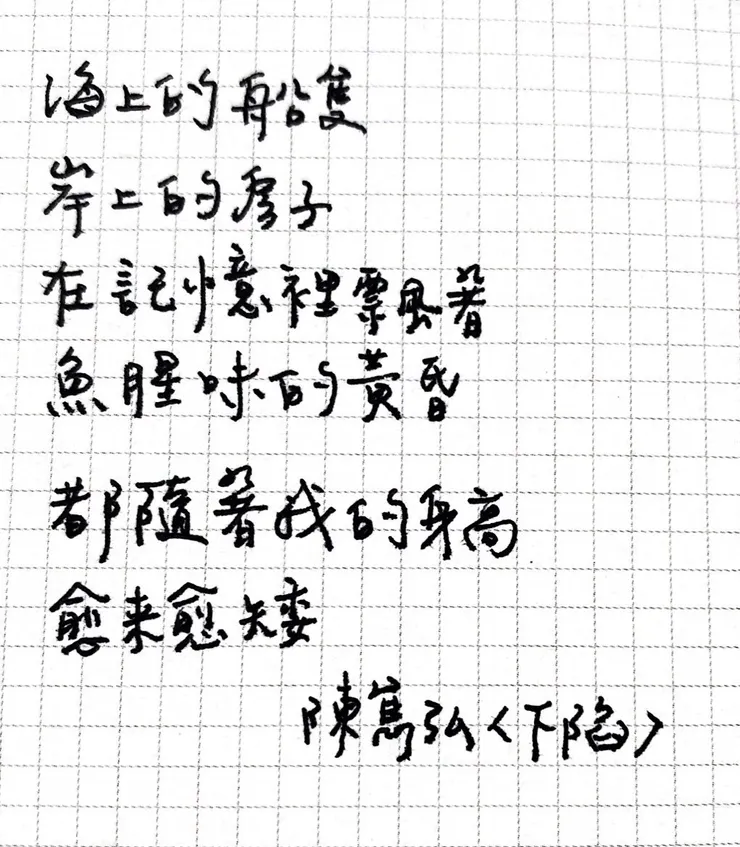 海上的船隻
岸上的房子
在記憶裡飄著
魚腥味的黃昏
都隨著我的身高
愈來愈矮
陳雋弘〈下陷〉